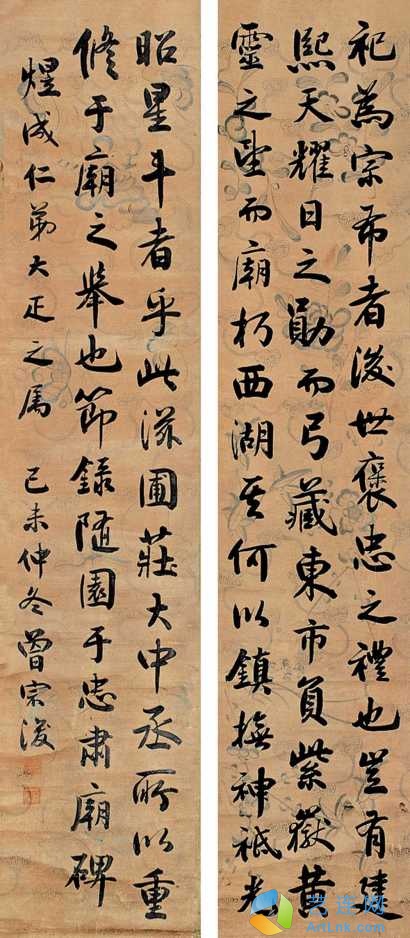 祀為宗布者後世褒忠之禮也豈有建
熙天耀日之勛而弓藏東市負紫嶽黃
靈之望而廟朽西湖其何以鎮撫神祇光
昭星斗者乎此滋圃莊大中丞所以重
修于廟之舉也節錄隨園于忠肅廟碑
煜成仁弟大疋之屬 己未仲冬曾宗浚
艺连网
ArtLnk.com